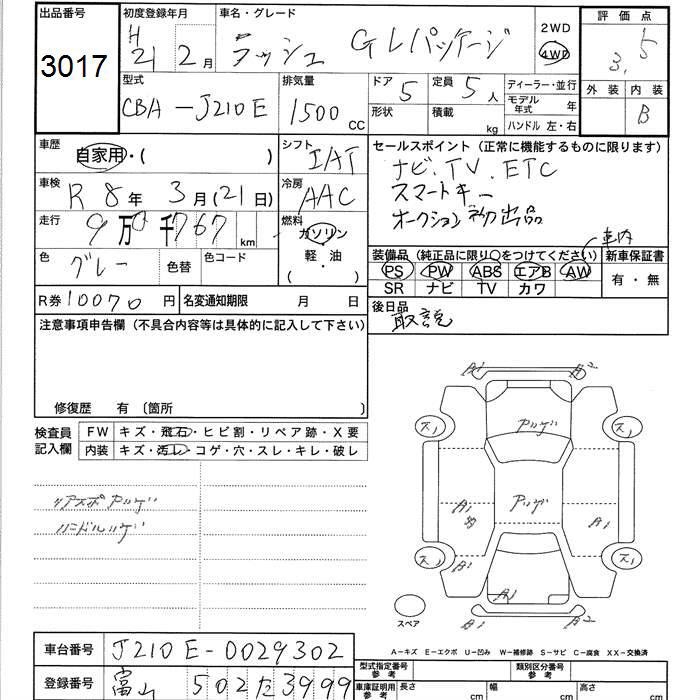 出品番号 初度登録年月 車名・グレード 2WD 評価点
3017 H21 2月 ラッシュ GLパッケージ 4WD 3.5
型式 排気量 ドア 定員 ディーラー・並行 外装 内装
CBA-J210E 1500CC 5 5人 モデル年式 年 B
形状 積載 kg ハンドル 左・右
車歴 自家用・( ) シフト IAT セールスポイント(正常に機能するものに限ります)
車検 R8年3月(21日) 冷房 AAC ナビ、TV、ETC
スマートキー
走行 9万0千767km 燃料 ガソリン オークション初出品
色 グレー 色替 色コード 軽・油 装備品(純正品に限り○をつけてください) 車内 新車保証書
( ・ ) PS PW ABS エアB AW 有・無
SR ナビ TV カワ
R券 10070円 名変通知期限 月 日 後日品
取説
注意事項申告欄(不具合内容等は具体的に記入して下さい)
修復歴 有〔箇所 〕
検査員記入欄 FW キズ・飛石・ヒビ割・リペア跡・X要
内装 キズ・汚レ・コゲ・穴・スレ・キレ・破レ
リアスポ アリゲ
ハンドルリゲ
A1 A2
ス1 アリゲ ス1
A1 アリゲ A1
ス1 ス1
A1 A1
A1 A2
スペア
A-キズ E-エクボ U-凹み W-補修跡 S-サビ C-腐食 XX-交換済
車台番号 J210E-0029302 型式指定番号 参考 類別区分番号 参考
登録番号 富山 502た3999 車庫証明用 参考 長さ cm 幅 cm 高さ cm